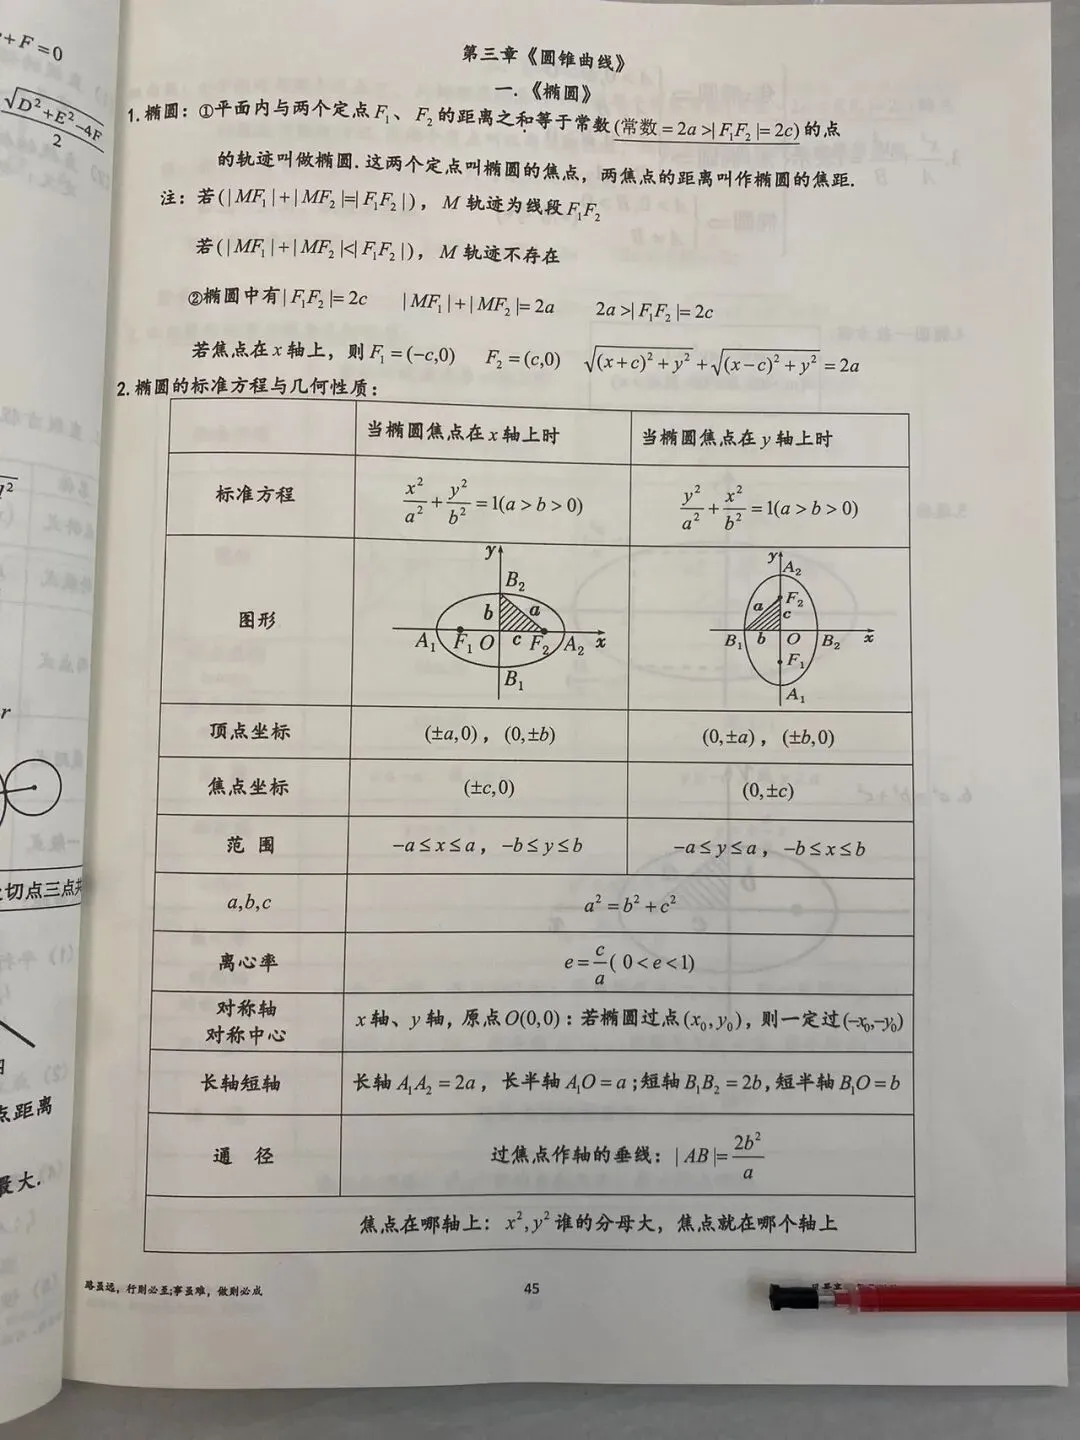 +F=0
√(D²+E²-4F)
2
第三章《圆锥曲线》
一.《椭圆》
1.椭圆：①平面内与两个定点F₁、F₂的距离之和等于常数(常数=2a>|F₁F₂|=2c)的点
的轨迹叫做椭圆.这两个定点叫椭圆的焦点，两焦点的距离叫作椭圆的焦距.
注：若(|MF₁|+|MF₂|=|F₁F₂|)，M轨迹为线段F₁F₂
若(|MF₁|+|MF₂|<|F₁F₂|)，M轨迹不存在
②椭圆中有|F₁F₂|=2c |MF₁|+|MF₂|=2a 2a>|F₁F₂|=2c
若焦点在x轴上，则F₁=(-c,0) F₂=(c,0) √((x+c)²+y²)+√((x-c)²+y²)=2a
2.椭圆的标准方程与几何性质：
当椭圆焦点在x轴上时 当椭圆焦点在y轴上时
标准方程 x²/a²+y²/b²=1(a>b>0) y²/a²+x²/b²=1(a>b>0)
图形
y B₂ b a A₁ F₁ O c F₂ A₂ x B₁
y A₂ F₂ a c B₁ b O B₂ x F₁ A₁
顶点坐标 (±a,0)，(0,±b) (0,±a)，(±b,0)
焦点坐标 (±c,0) (0,±c)
范 围 -a≤x≤a，-b≤y≤b -a≤y≤a，-b≤x≤b
a,b,c a²=b²+c²
离心率 e=c/a(0<e<1)
对称轴
对称中心 x轴、y轴，原点O(0,0)：若椭圆过点(x₀,y₀)，则一定过(-x₀,-y₀)
长轴短轴 长轴A₁A₂=2a，长半轴A₁O=a;短轴B₁B₂=2b,短半轴B₁O=b
通 径 过焦点作轴的垂线：|AB|=2b²/a
焦点在哪轴上：x²,y²谁的分母大，焦点就在哪个轴上
路虽远，行则必至;事虽难，做则必成
45
r
切点三点共
点距离
最大.